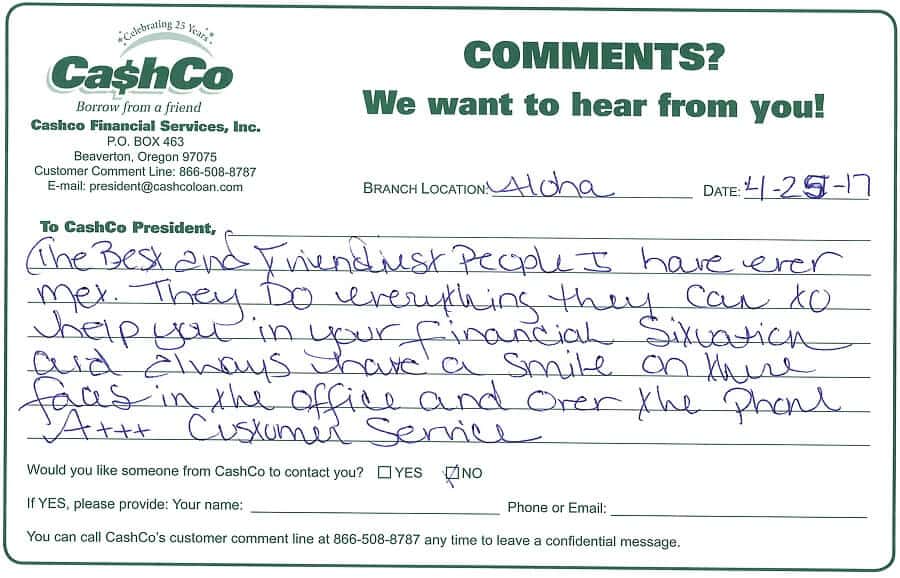 Celebrating 25 Years
Ca$hCo
Borrow from a friend
Cashco Financial Services, Inc.
P.O. BOX 463
Beaverton, Oregon 97075
Customer Comment Line: 866-508-8787
E-mail: president@cashcoloan.com
COMMENTS?
We want to hear from you!
BRANCH LOCATION: Aloha DATE: 4-25-17
To CashCo President,
The Best and Friendliest People I have ever
met. They Do everything they can to
help you in your financial Situation
and always have a smile on there
faces in the office and over the phone
A+++ Customer Service
Would you like someone from CashCo to contact you? YES NO
If YES, please provide: Your name: Phone or Email:
You can call CashCo's customer comment line at 866-508-8787 any time to leave a confidential message.